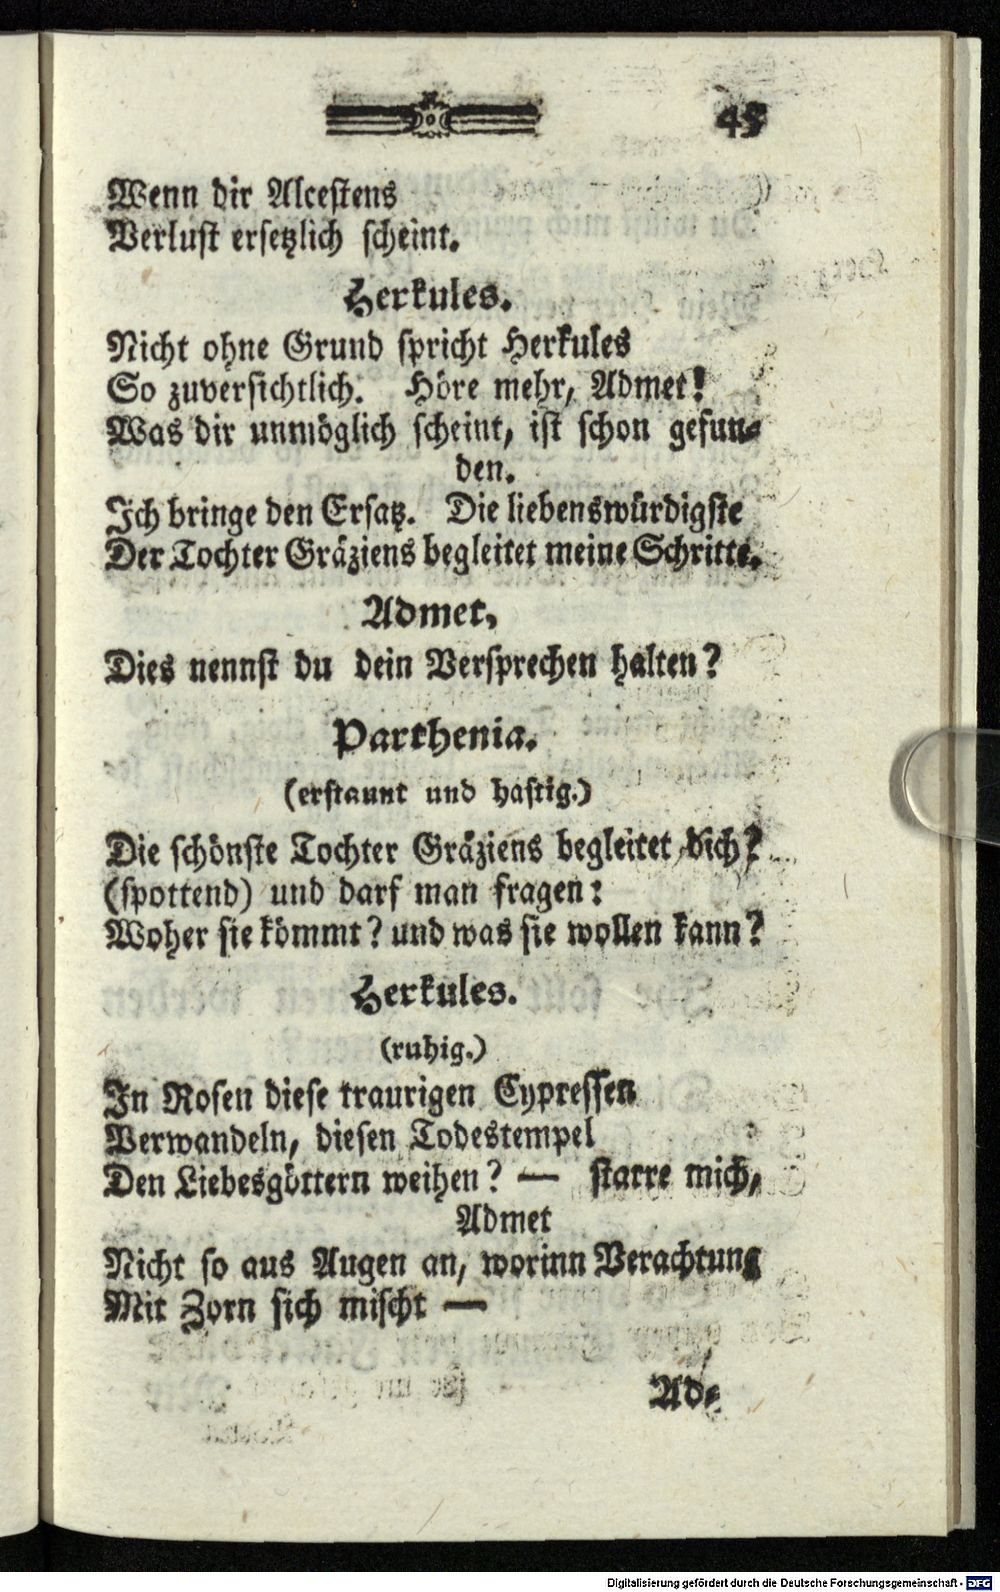 45
Wenn dir Alcestens
Verlust ersetzlich scheint.
Herkules.
Nicht ohne Grund spricht Herkules
So zuversichtlich. Höre mehr, Admet!
Was dir unmöglich scheint, ist schon gefun-
den.
Ich bringe den Ersatz. Die liebenswürdigste
Der Tochter Gräziens begleitet meine Schritte.
Admet,
Dies nennst du dein Versprechen halten?
Parthenia.
(erstaunt und hastig.)
Die schönste Tochter Gräziens begleitet dich?
(spottend) und darf man fragen:
Woher sie kömmt? und was sie wollen kann?
Herkules.
(ruhig.)
In Rosen diese traurigen Cypressen
Verwandeln, diesen Todestempel
Den Liebesgöttern weihen? — starre mich,
Admet
Nicht so aus Augen an, worinn Verachtung
Mit Zorn sich mischt —
Ad-
Digitalisierung gefördert durch die Deutsche Forschungsgemeinschaft - DFG